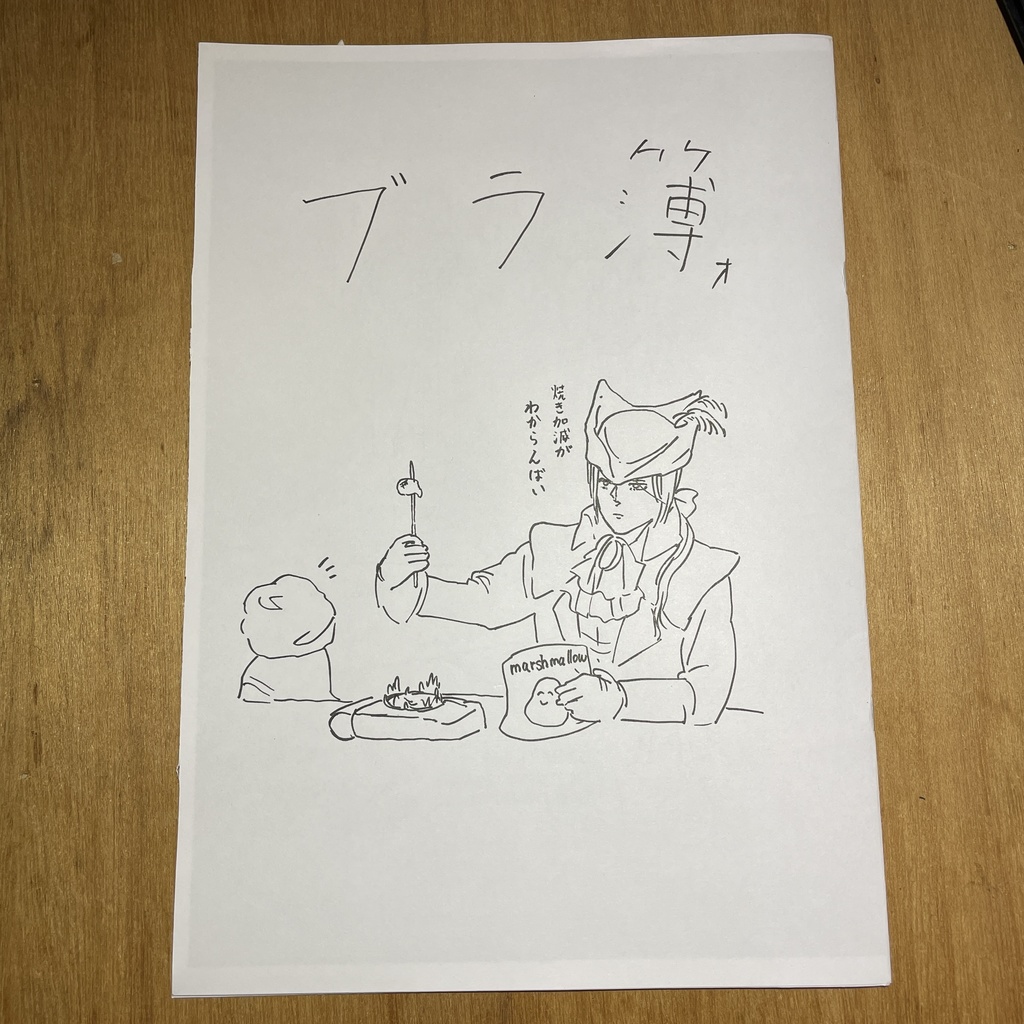 ブラ簿ォ
焼き加減が
わからんばい
marshmallow